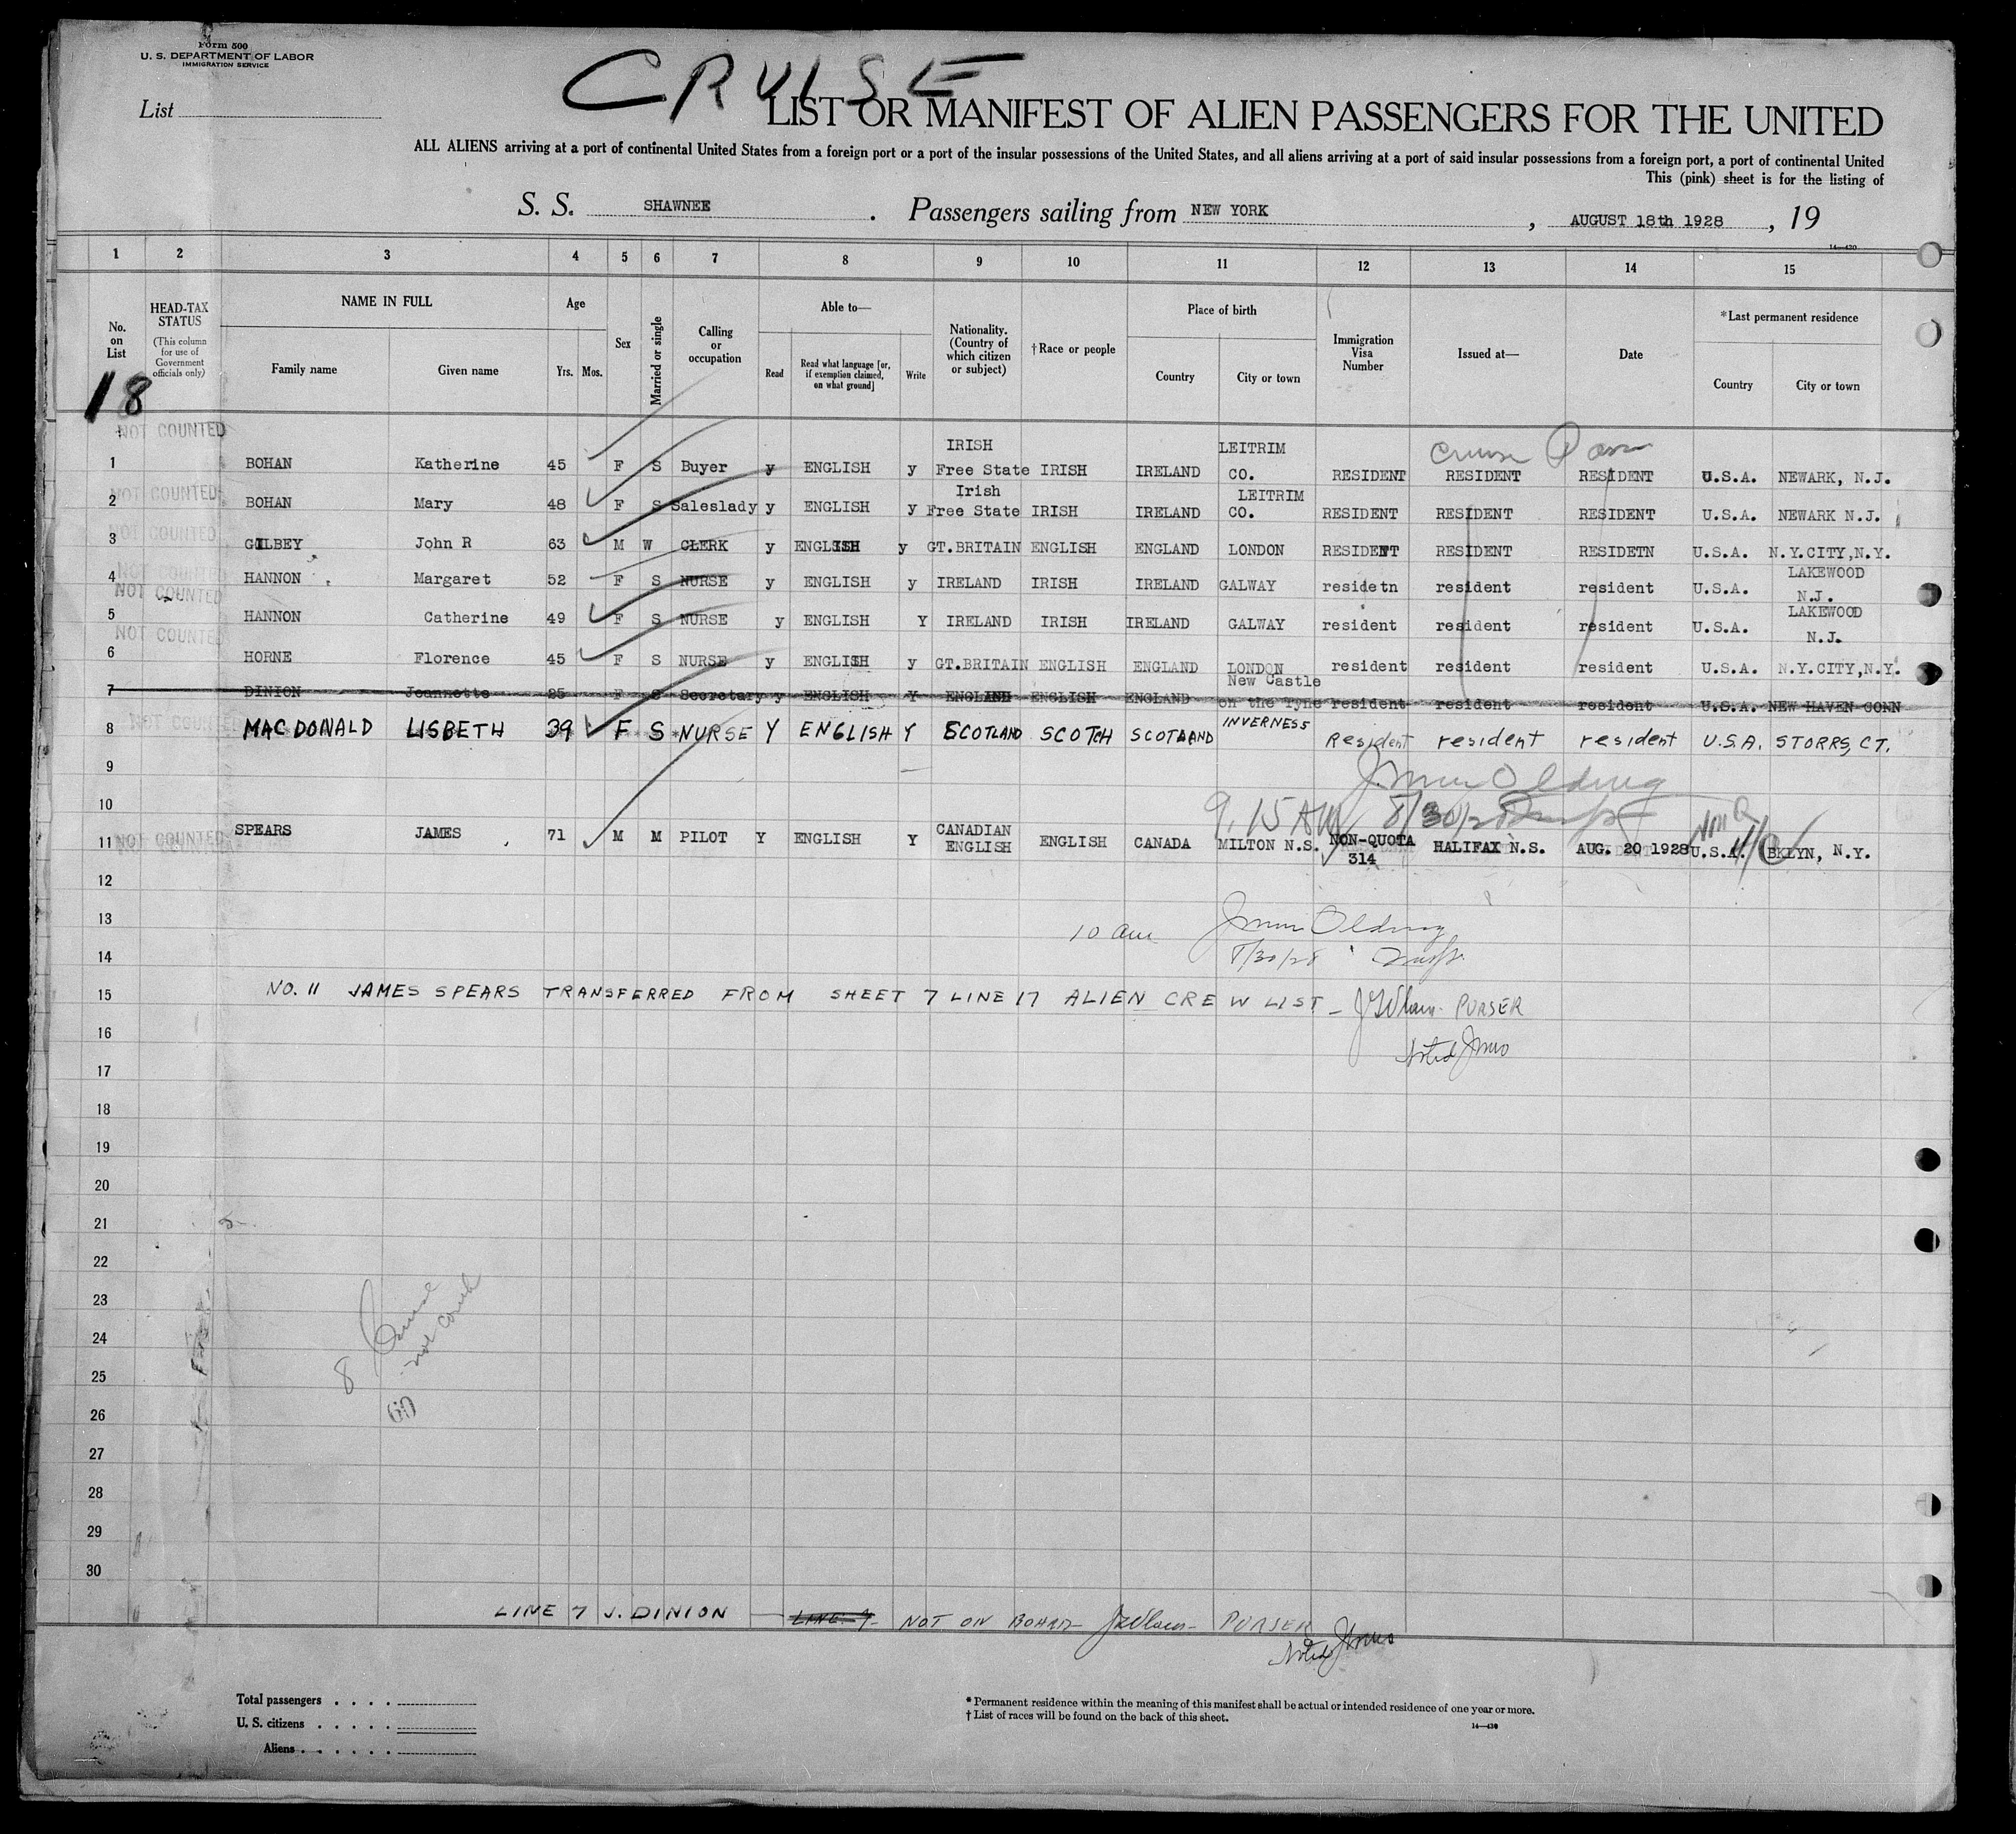 Form 500
U. S. DEPARTMENT OF LABOR
IMMIGRATION SERVICE
CRUISE
List
LIST OR MANIFEST OF ALIEN PASSENGERS FOR THE UNITED
ALL ALIENS arriving at a port of continental United States from a foreign port or a port of the insular possessions of the United States, and all aliens arriving at a port of said insular possessions from a foreign port, a port of continental United
This (pink) sheet is for the listing of
S. S. SHAWNEE . Passengers sailing from NEW YORK , AUGUST 18th 1928 , 19
14—430
1 2 3 4 5 6 7 8 9 10 11 12 13 14 15
No. on List
HEAD-TAX STATUS
(This column for use of Government officials only)
NAME IN FULL
Family name Given name
Age
Yrs. Mos.
Sex
Married or single
Calling or occupation
Able to—
Read
Read what language [or, if exemption claimed, on what ground]
Write
Nationality. (Country of which citizen or subject)
†Race or people
Place of birth
Country City or town
Immigration Visa Number
Issued at—
Date
*Last permanent residence
Country City or town
18
NOT COUNTED
Cruise Pass
1 BOHAN Katherine 45 F S Buyer y ENGLISH y IRISH Free State IRISH IRELAND LEITRIM CO. RESIDENT RESIDENT RESIDENT U.S.A. NEWARK, N.J.
NOT COUNTED
2 BOHAN Mary 48 F S Saleslady y ENGLISH y Irish Free State IRISH IRELAND LEITRIM CO. RESIDENT RESIDENT RESIDENT U.S.A. NEWARK N.J.
NOT COUNTED
3 GILBEY John R 63 M W CLERK y ENGLISH y GT.BRITAIN ENGLISH ENGLAND LONDON RESIDENT RESIDENT RESIDETN U.S.A. N.Y.CITY,N.Y.
NOT COUNTED
4 HANNON Margaret 52 F S NURSE y ENGLISH y IRELAND IRISH IRELAND GALWAY residetn resident resident U.S.A. LAKEWOOD N.J.
NOT COUNTED
5 HANNON Catherine 49 F S NURSE y ENGLISH Y IRELAND IRISH IRELAND GALWAY resident resident resident U.S.A. LAKEWOOD N.J.
NOT COUNTED
6 HORNE Florence 45 F S NURSE y ENGLISH y GT.BRITAIN ENGLISH ENGLAND LONDON resident resident resident U.S.A. N.Y.CITY,N.Y.
7 DINION Jeannette 25 F S Secretary y ENGLISH Y ENGLAND ENGLISH ENGLAND New Castle on the Tyne resident resident resident U.S.A. NEW HAVEN CONN
NOT COUNTED
8 MACDONALD LISBETH 39 F S NURSE Y ENGLISH Y SCOTLAND SCOTCH SCOTLAND INVERNESS Resident resident resident U.S.A. STORRS, CT.
9
10
9.15 AM 8/30/28
NOT COUNTED
11 SPEARS JAMES 71 M M PILOT Y ENGLISH Y CANADIAN ENGLISH ENGLISH CANADA MILTON N.S. NON-QUOTA 314 HALIFAX N.S. AUG. 20 1928 U.S.A. BKLYN, N.Y.
12
13
10 am
14
8/30/28
15 NO. 11 JAMES SPEARS TRANSFERRED FROM SHEET 7 LINE 17 ALIEN CREW LIST – PURSER
16
Noted
17
18
19
20
21
22
23
24
8 Cruise
not count
25
26
27
28
29
30
LINE 7 J. DINION — LINE 7 – NOT ON BOARD – PURSER
Noted
Total passengers . . . .
U. S. citizens . . . . .
Aliens . . . . . .
* Permanent residence within the meaning of this manifest shall be actual or intended residence of one year or more.
† List of races will be found on the back of this sheet.
14—430